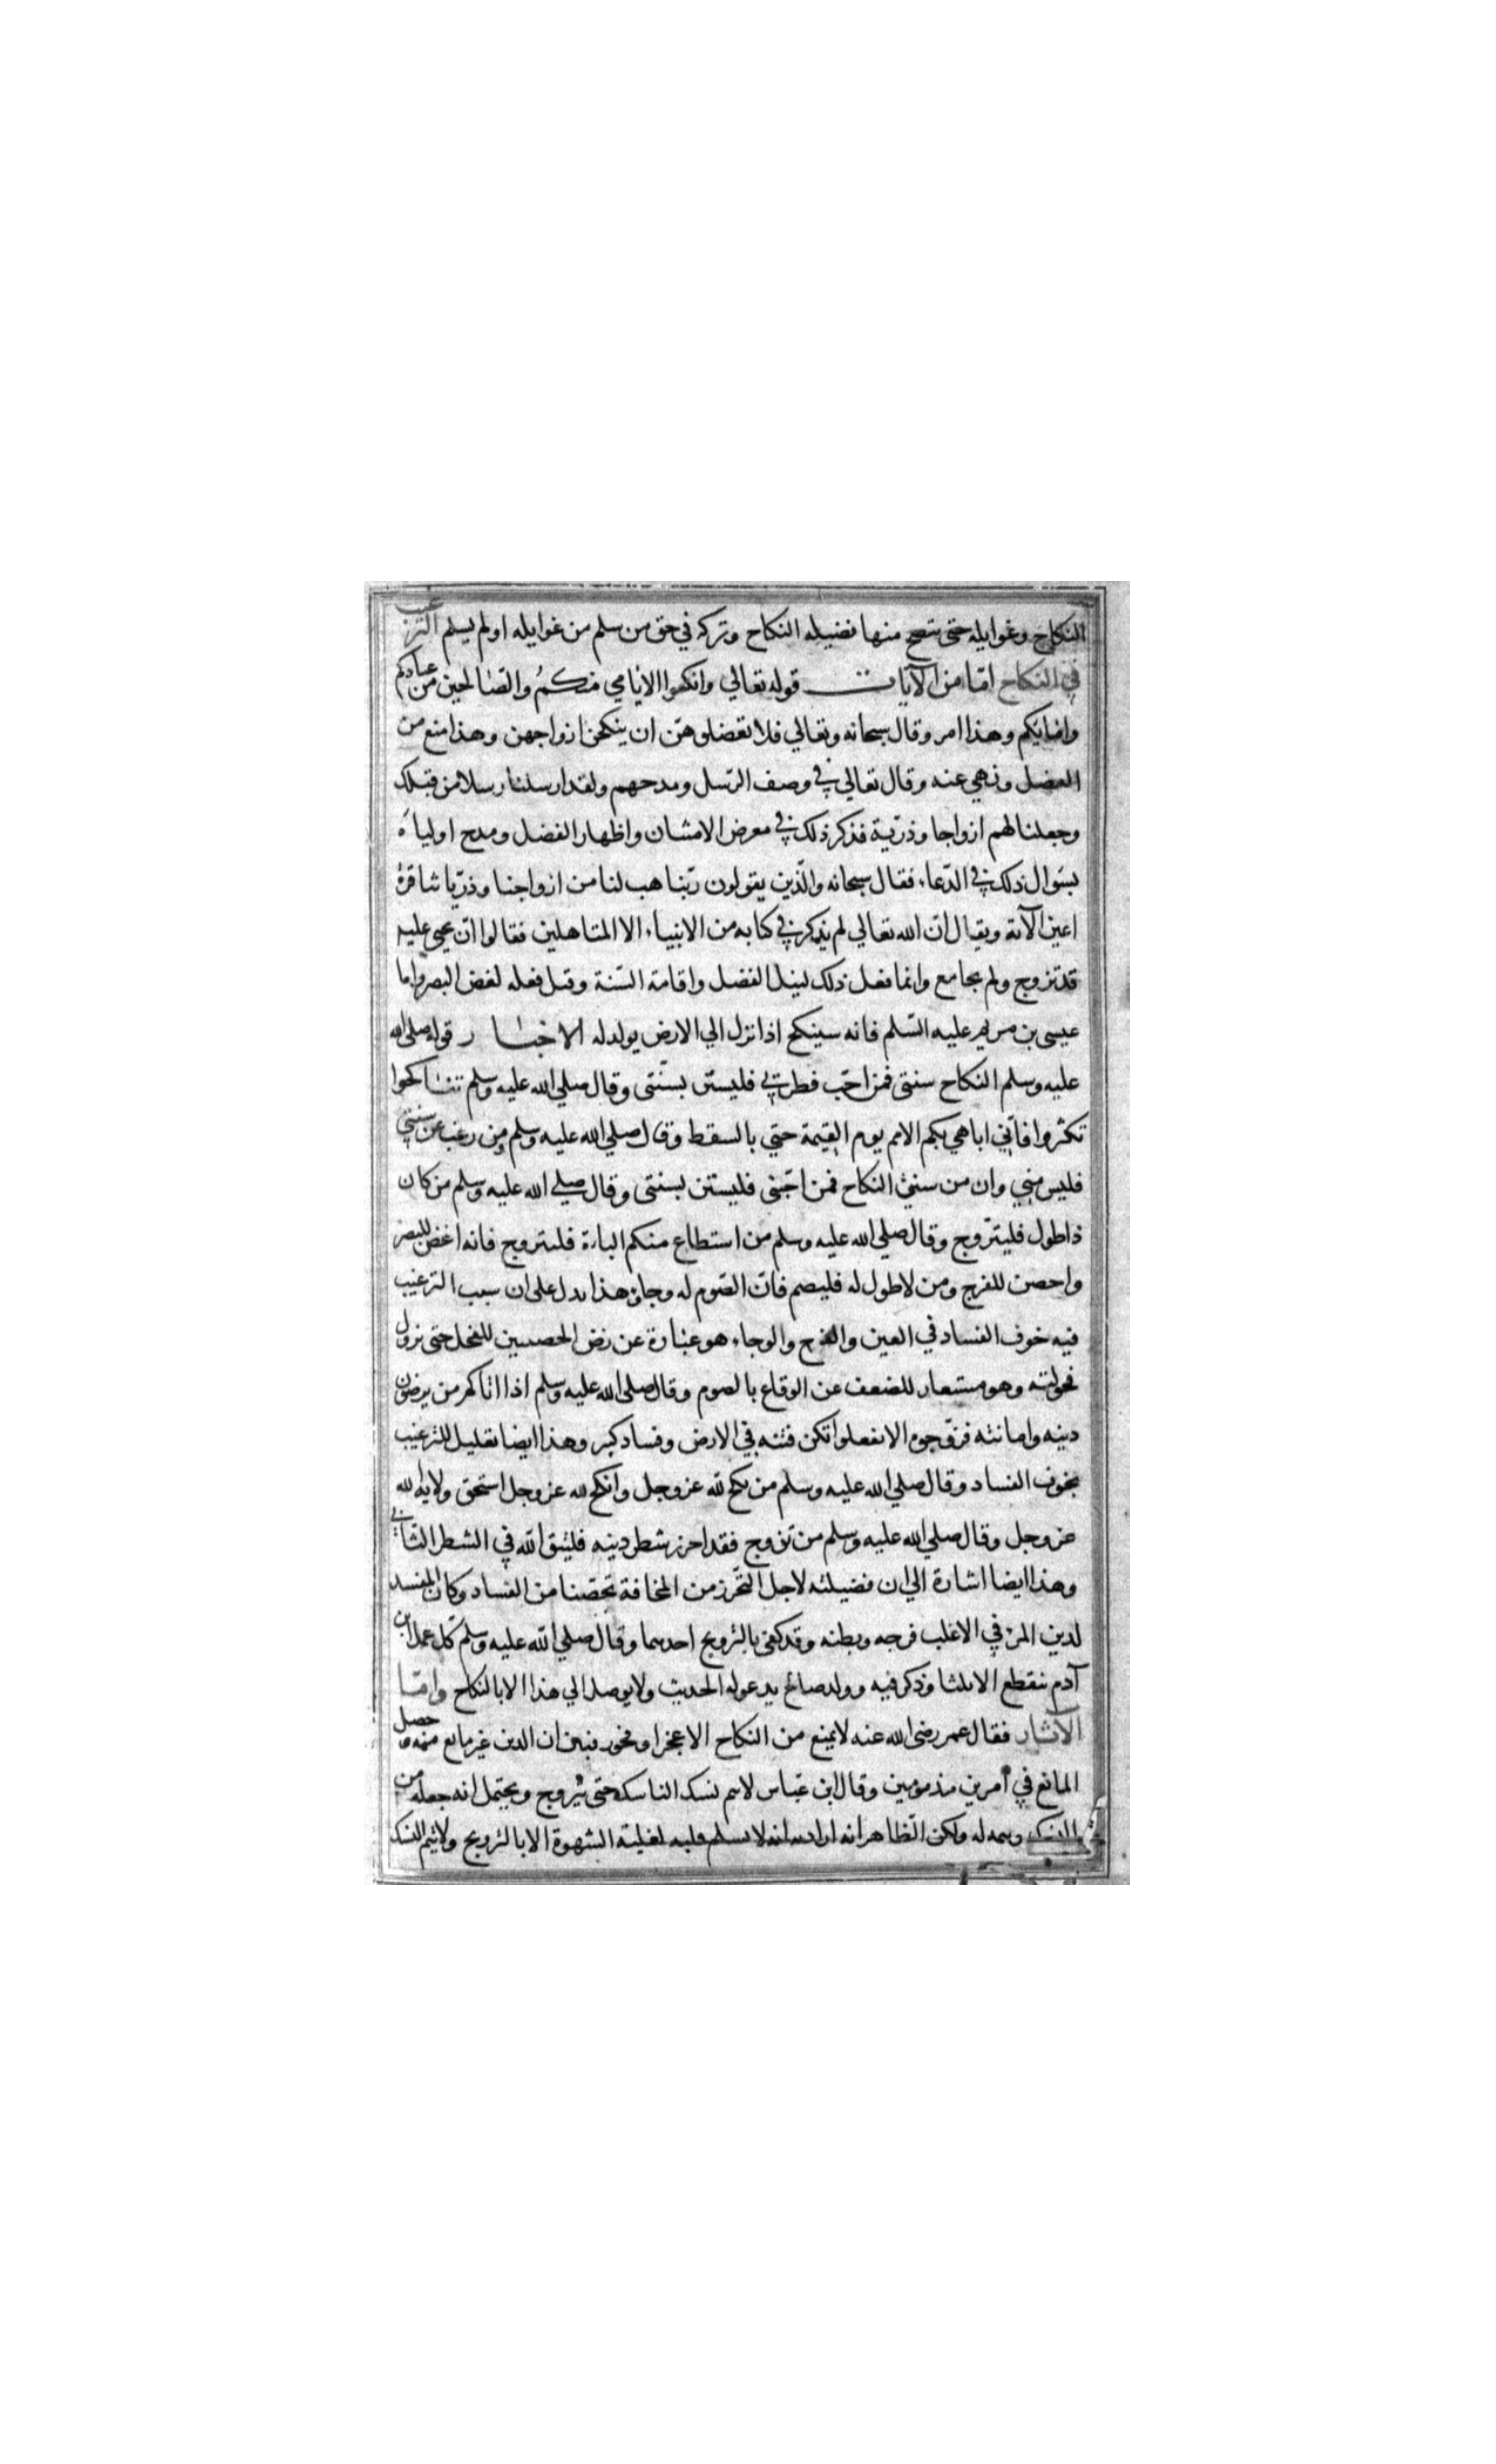 النكاح وغوايله حتى يتضح منها فضيله النكاح وتركه في حق من سلم من غوايله او لم يسلم الترغيب
في النكاح امّا من الآيات قوله تعالي وانكحوا الايامي منكم والصّالحين من عبادكم
وامايكم وهذا امر وقال سبحانه وتعالي فلا تعضلوهنّ ان ينكحن ازواجهن وهذا منع من
العضل ونهي عنه وقال تعالي في وصف الرّسل ومدحهم ولقد ارسلنا رسلا من قبلك
وجعلنا لهم ازواجا وذرّية فذكر ذلك في معرض الامتنان واظهار الفضل ومدح اولياءه
بسوال ذلك في الدّعاء فقال سبحانه والّذين يقولون ربّنا هب لنا من ازواجنا وذرّياتنا قرة
اعين الآية ويقال انّ الله تعالي لم يذكر في كتابه من الانبياء الا المتاهلين فقالوا انّ يحيى عليه
قد تزوج ولم يجامع وانما فعل ذلك لنيل الفضل واقامة السّنة وقيل فعله لغض البصر واما
عيسى بن مريم عليه السّلم فانه سينكح اذا نزل الي الارض يولد له الاخبار قوله صلى الله
عليه وسلم النكاح سنتى فمن احّب فطرتي فليستن بسنّتى وقال صلي الله عليه وسلم تناكحوا
تكثروا فانّي اباهي بكم الامم يوم القيمة حتي بالسقط وقال صلي الله عليه وسلم من رغب عن سنتي
فليس مني وان من سنتي النكاح فمن احّبنى فليستن بسنتى وقال صلي الله عليه وسلم من كان
ذا طول فليتزّوج وقال صلي الله عليه وسلم من استطاع منكم الباءة فليتزوج فانه اغض للبصر
واحصن للفرج ومن لا طول له فليصم فانّ الصّوم له وجاء وهذا يدل على ان سبب الترغيب
فيه خوف الفساد في العين والفرج والوجاء هو عبارة عن رض الخصيتين للفحل حتى تزول
فحولته وهو مستعار للضعف عن الوقاع بالصوم وقال صلى الله عليه وسلم اذا اتاكم من يرضون
دينه وامانته فزوّجوه الا تفعلوا تكن فتنه في الارض وفساد كبير وهذا ايضا تعليل للترغيب
بخوف الفساد وقال صلي الله عليه وسلم من نكح لله عز وجل وانكح لله عز وجل استحق ولاية الله
عز وجل وقال صلي الله عليه وسلم من تزوج فقد احرز شطر دينه فليتق الله في الشطر الثاني
وهذا ايضا اشارة الي ان فضيلته لاجل التّحرز من المخافة تحصّنا من الفساد وكان المفسد
لدين المرء في الاغلب فرجه وبطنه وقد كفى بالتزويج احدهما وقال صلي الله عليه وسلم كل عمل ابن
آدم ينقطع الا ثلثا وذكر فيه وولد صالح يدعو له الحديث ولا يوصل الي هذا الا بالنكاح وامّا
الآثار فقال عمر رضى الله عنه لا يمنع من النكاح الا عجز او فجور فبين ان الدين غير مانع منه حصل
المانع في أمرين مذمومين وقال ابن عبّاس لا يتم نسك الناسك حتى يتزوج ويحتمل انه جعله من
النسك وتتمة له ولكن الظاهر انه اراد به انه لا يسلم قلبه لغلبة الشهوة الا بالتزويج ولا يتم النسك